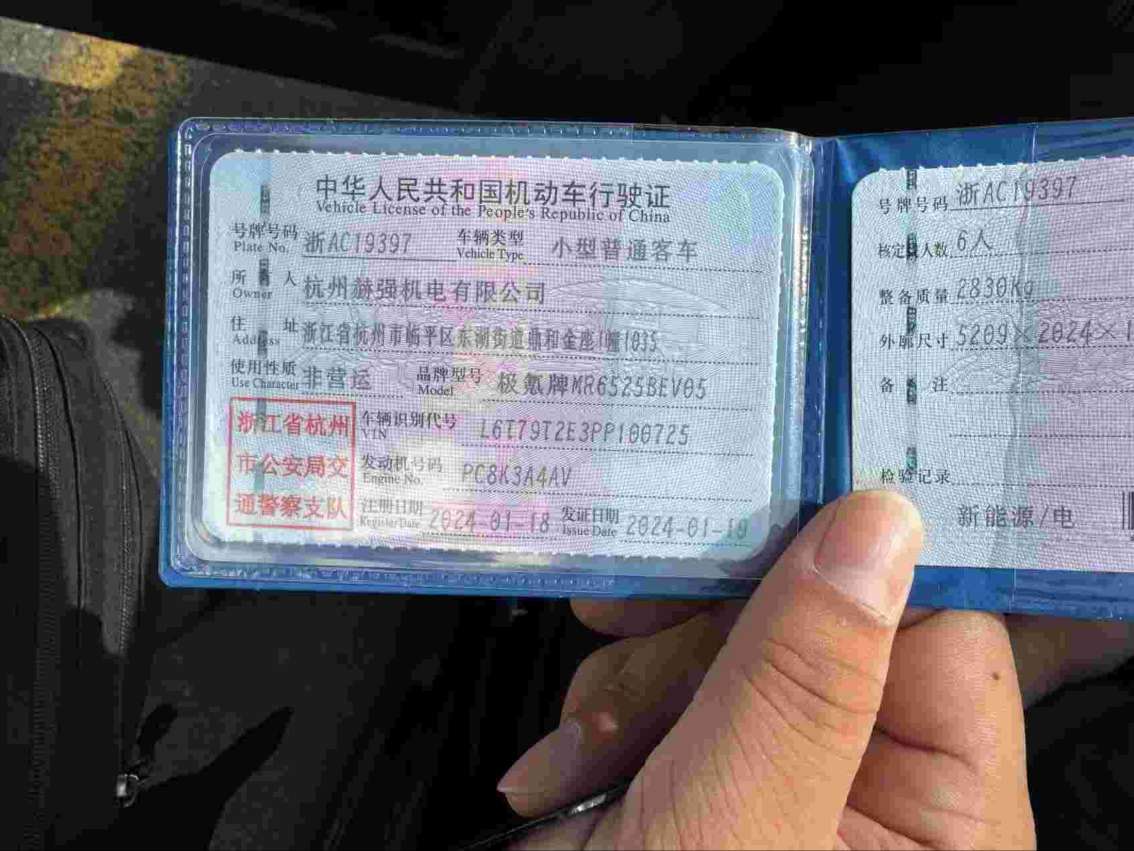 中华人民共和国机动车行驶证
Vehicle License of the People's Republic of China
号牌号码 浙AC19397 车辆类型 小型普通客车
Plate No. Vehicle Type
所 有 人 杭州赫强机电有限公司
Owner
住 址 浙江省杭州市临平区东湖街道鼎和金座1幢1035
Address
使用性质 非营运 品牌型号 极氪牌MR6525BEV05
Use Character Model
浙江省杭州
市公安局交
通警察支队
车辆识别代号 L6T79T2E3PP100725
VIN
发动机号码 PC8K3A4AV
Engine No.
注册日期 2024-01-18 发证日期 2024-01-19
Register Date Issue Date
号牌号码 浙AC19397
核定载人数 6人
整备质量 2830Kg
外廓尺寸 5209×2024×1
备 注
检验记录
新能源/电